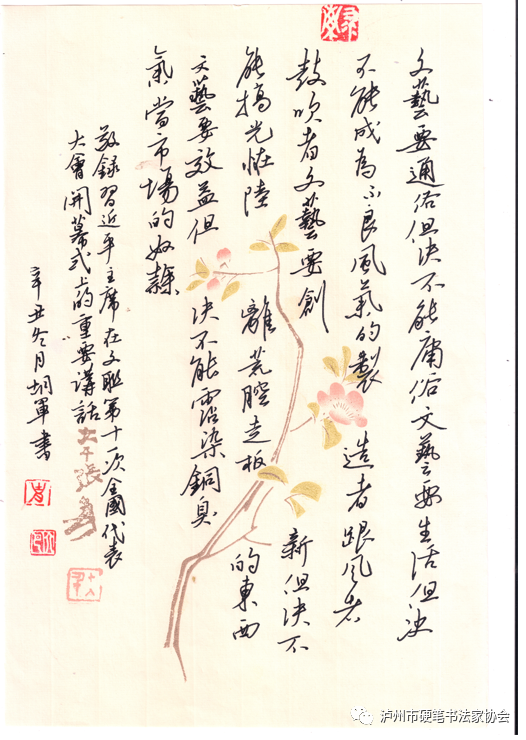 文藝要通俗但决不能庸俗文藝要生活但决
不能成為不良風氣的製造者跟風者
鼓吹者文藝要創新但决不
能搞光怪陸離荒腔走板的東西
文藝要效益但决不能霑染銅臭
氣當市場的奴隸
敬録習近平主席在文聯第十一次全國代表
大會開幕式上的重要講話
辛丑冬月胡軍書
大千張爰
泸州市硬笔书法家协会